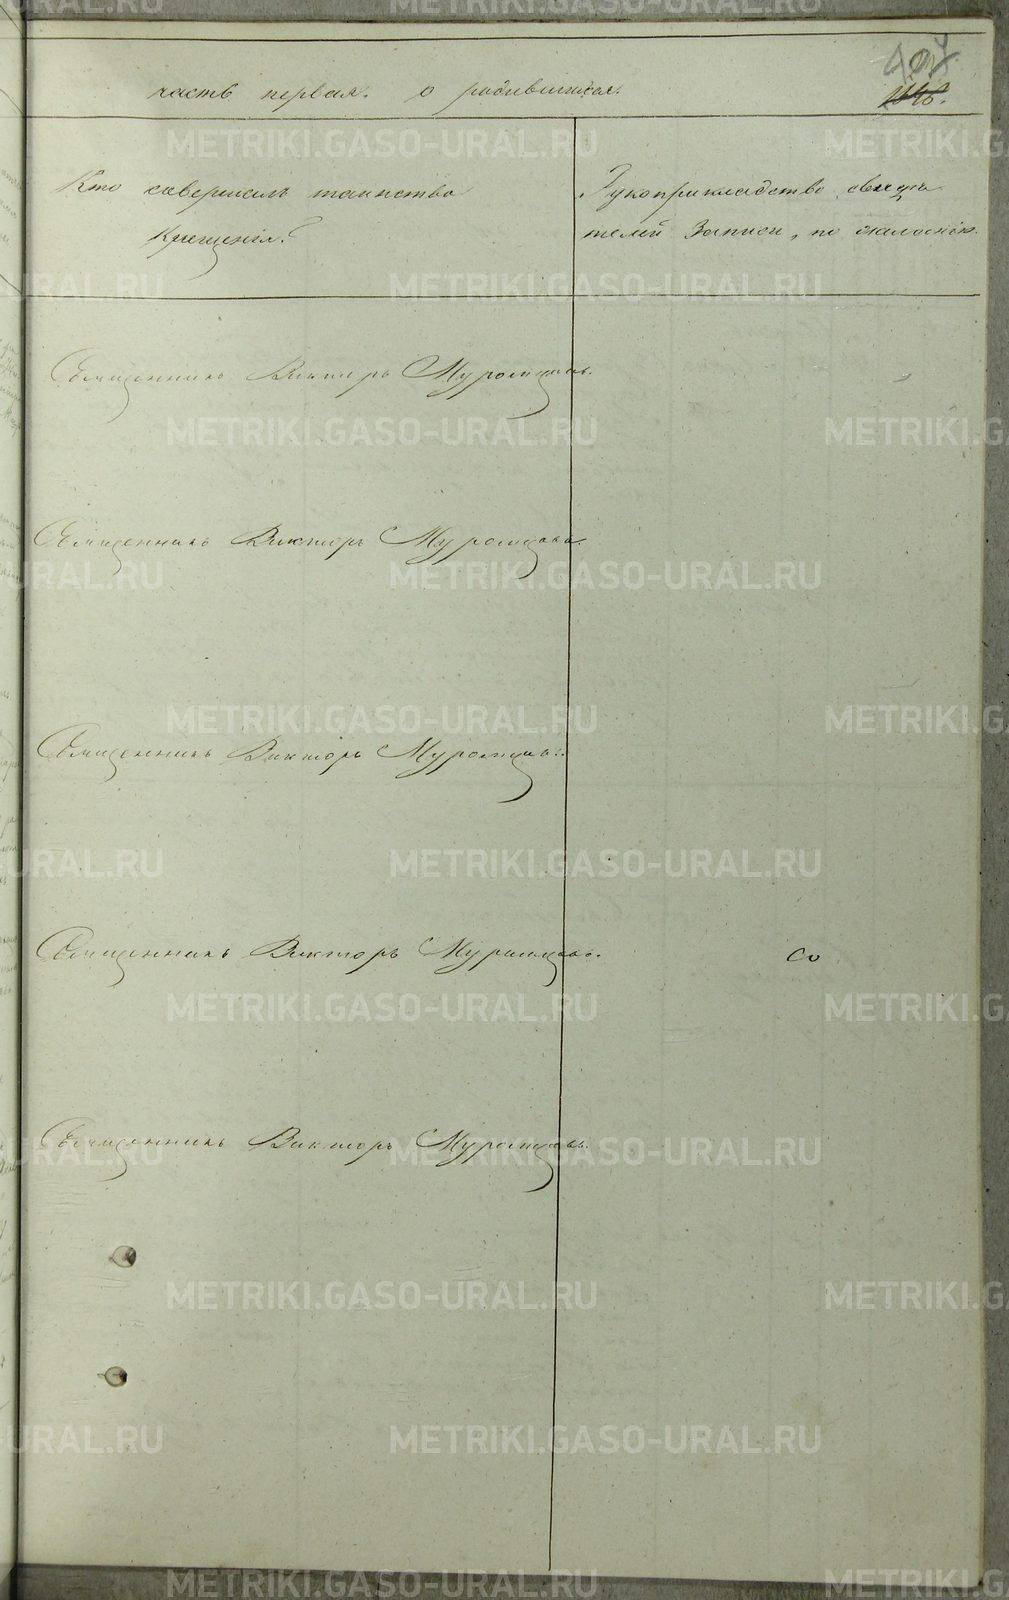 часть первая. о родившихся.
Кто совершалъ таинство
крещенія?
Рукоприкладство свидѣ
телей записи, по желанію.
Священникъ Викторъ Муромцовъ.
Священникъ Викторъ Муромцовъ.
Священникъ Викторъ Муромцовъ.
Священникъ Викторъ Муромцовъ.
Священникъ Викторъ Муромцовъ.
METRIKI.GASO-URAL.RU